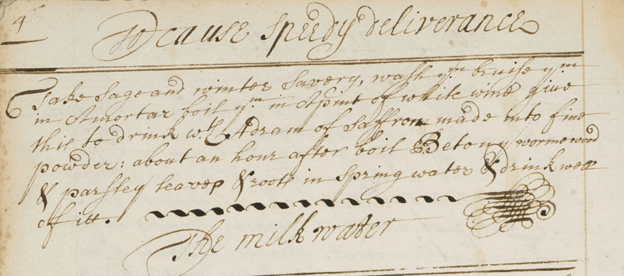 4
To cause speedy deliverance
Take sage and winter savery, wash ym bruise ym
in A mortar boil ym in A pint of white wine give
this to drink wth A dram of saffron made into fine
powder: about an hour after boil Betony wormewood
& parsley leaves & roots in spring water & drink wea
of itt.
The milk water